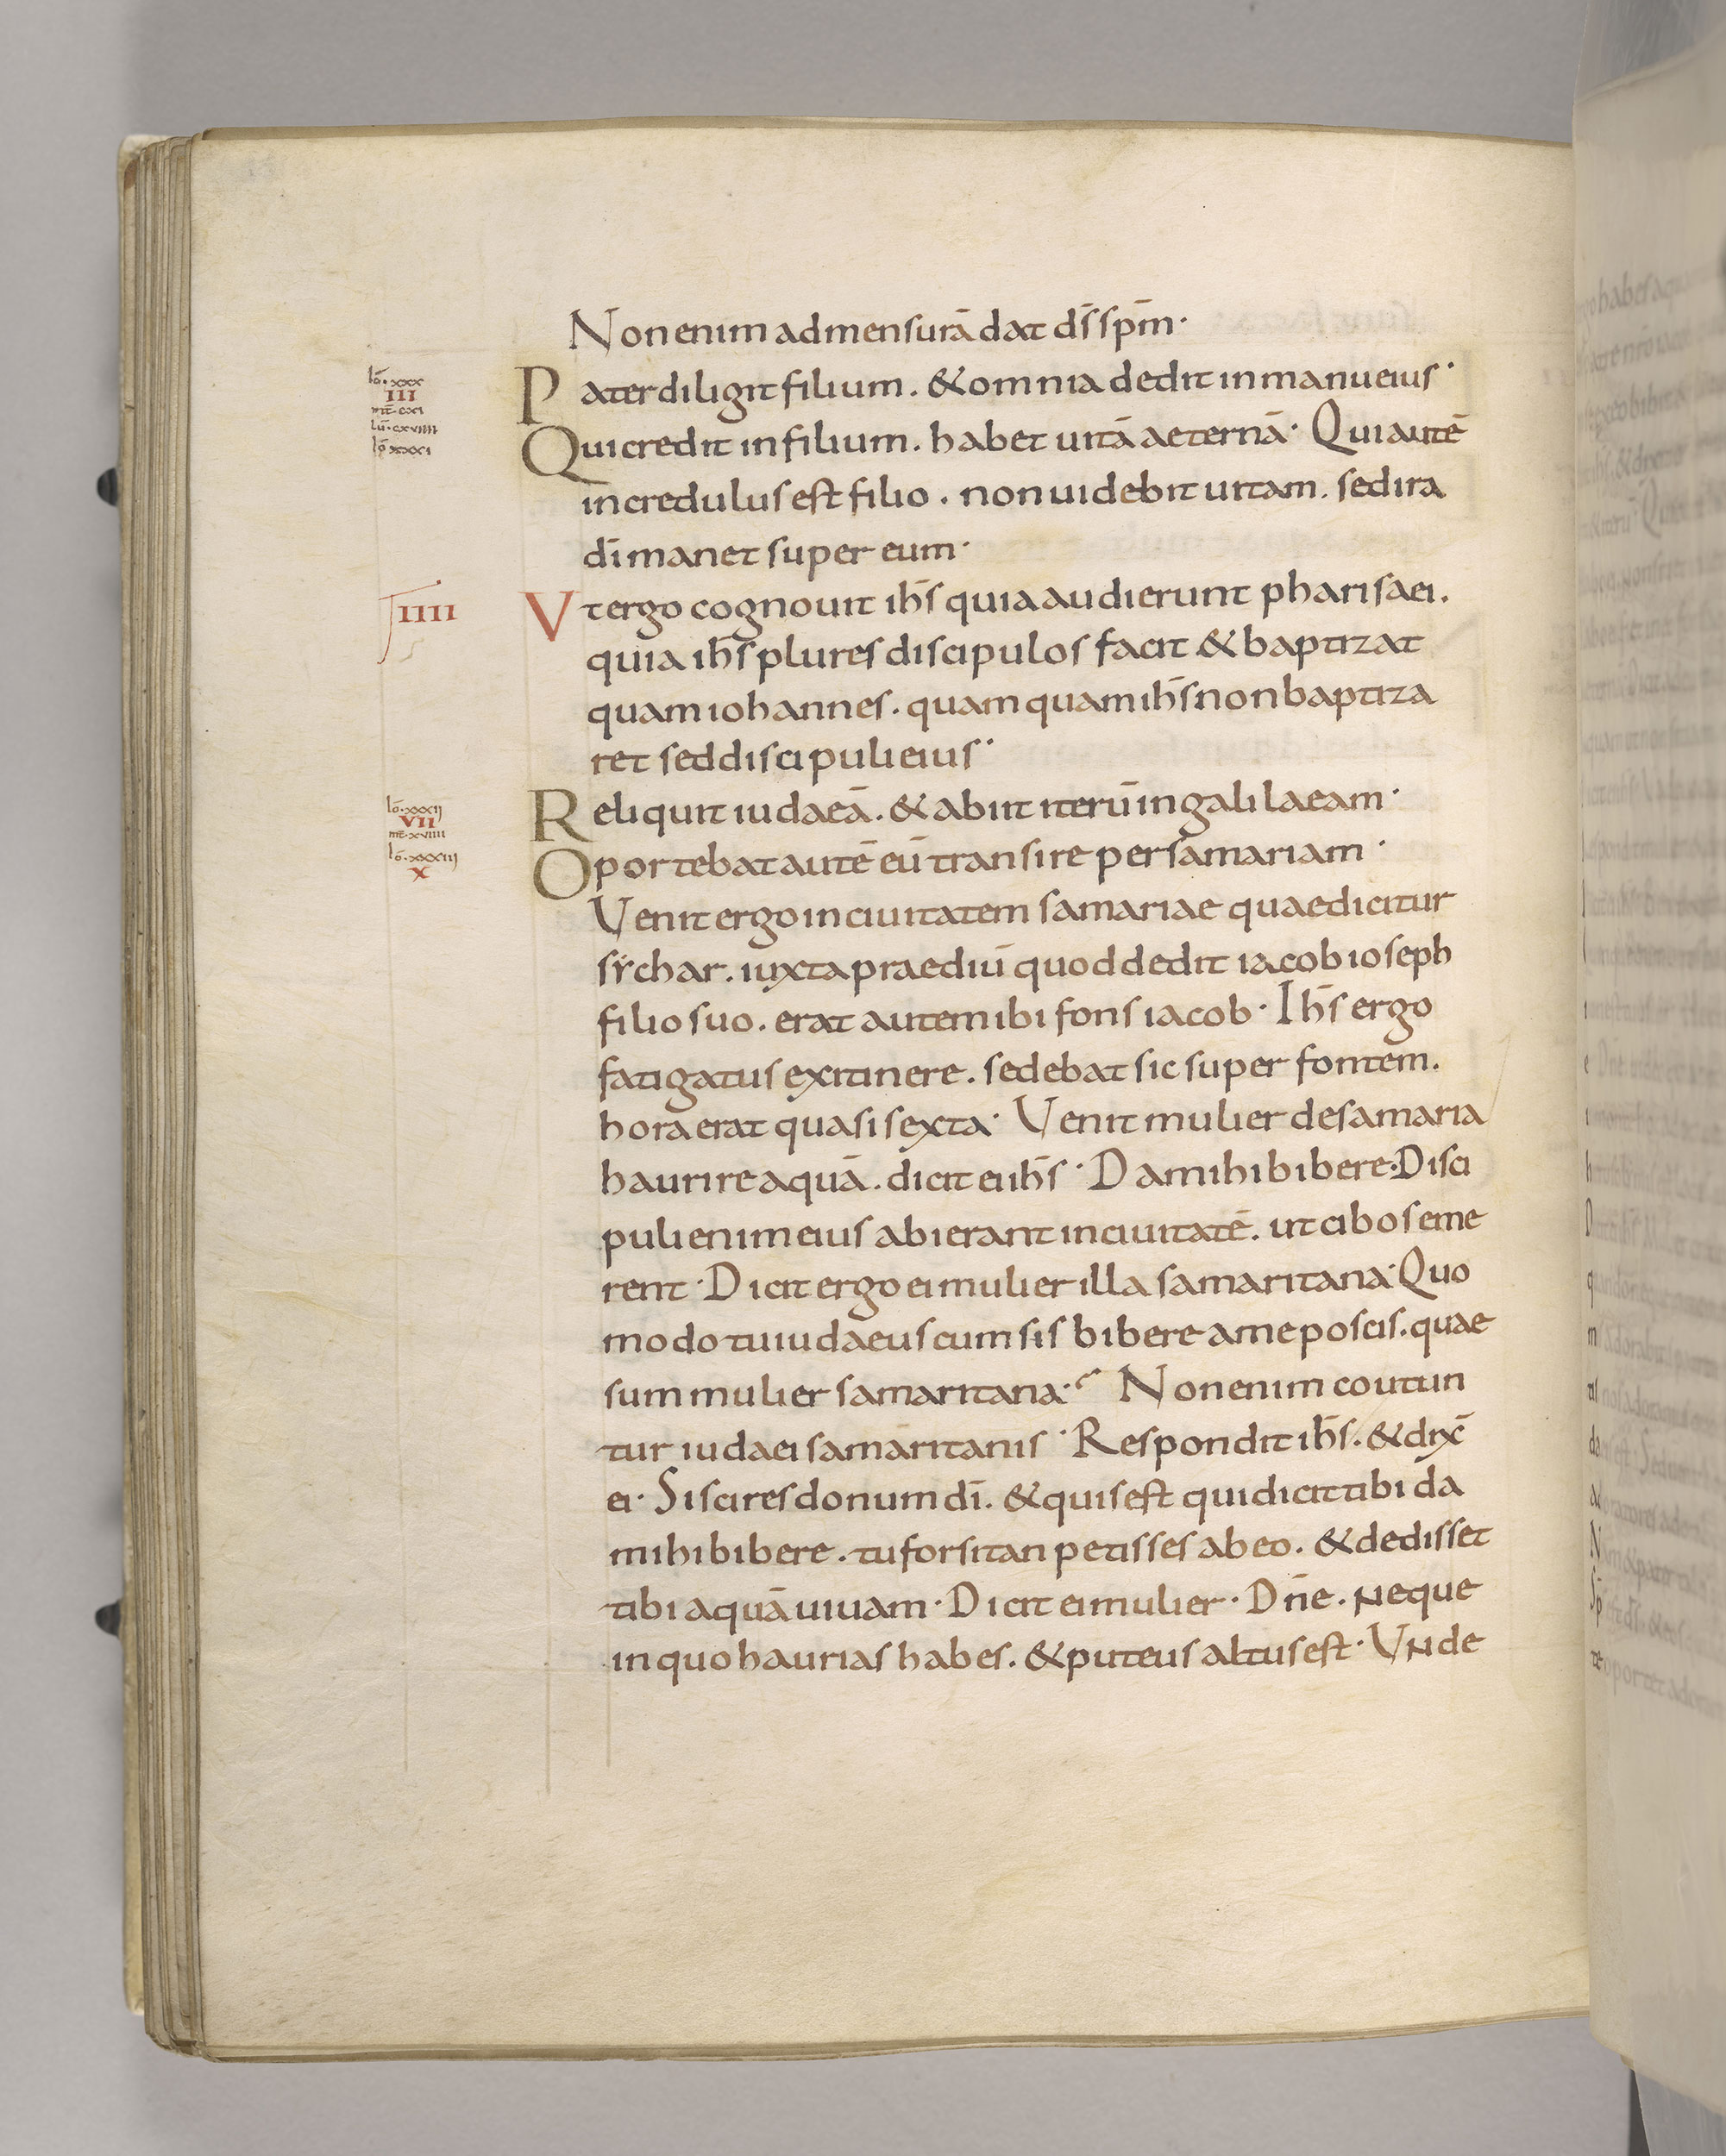 Non enim ad mensurā dat dš spm̄·
lō· xxx
III
mt̄· cxi
lū· cxviiii
lō xxxi
Pater diligit filium. & omnia dedit in manu eius·
Qui credit in filium. habet uitā aeternā· Qui autē
incredulus est filio. non uidebit uitam. sed ira
dī manet super eum·
IIII
Vt ergo cognouit ihs̄ quia audierunt pharisaei.
quia ihs̄ plures discipulos facit & baptizat
quam iohannes. quamquam ihs̄ non baptiza
ret sed discipuli eius·
lō· xxxii
VII
mt̄· xviiii
lō· xxxiii
X
Reliquit iudaeā. & abiit iterū in galilaeam·
Oportebat autē eū transire per samariam·
Venit ergo in ciuitatem samariae quae dicitur
sẏchar. iuxta praediū quod dedit iacob ioseph
filio suo. erat autem ibi fons iacob· Ihs̄ ergo
fatigatus ex itinere. sedebat sic super fontem.
hora erat quasi sexta· Venit mulier de samaria
haurire aquā. dicit ei ihs̄· Da mihi bibere· Disci
puli enim eius abierant in ciuitatē. ut cibos eme
rent· Dicit ergo ei mulier illa samaritana· Quo
modo tu iudaeus cum sis bibere a me poscis. quae
sum mulier samaritana? Non enim coutun
tur iudaei samaritanis· Respondit ihs̄. & dix̄
ei· Si scires donum dī. & quis est qui dicit tibi da
mihi bibere. tu forsitan petisses ab eo. & dedisset
tibi aquā uiuam· Dicit ei mulier· Dn̄e. neque
in quo haurias habes. & puteus altus est· Vnde